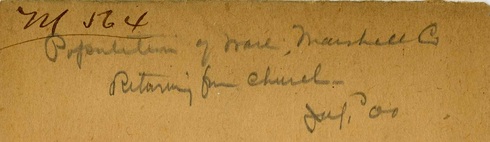 M 564
Population of Ware, Marshall Co
Returning from church
'00